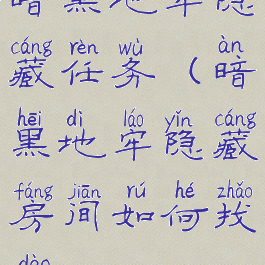 暗黑地牢隐
cáng rèn wù àn
藏任务（暗
hēi dì láo yǐn cáng
黑地牢隐藏
fáng jiān rú hé zhǎo
房间如何找
dào